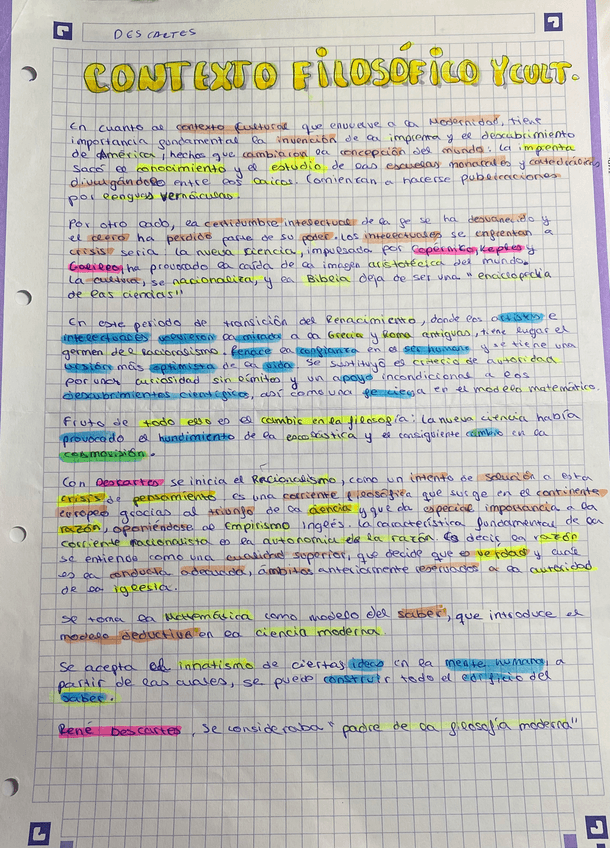 DESCARTES
CONTEXTO FILOSÓFICO Y CULT.
En cuanto al contexto cultural que envuelve a la Modernidad, tiene
importancia fundamental la invención de la imprenta y el descubrimiento
de América, hechos que cambiaron la concepción del mundo. La imprenta
sacó el conocimiento y el estudio de las escuelas monacales y catedralicias
divulgándolo entre los laicos. Comienzan a hacerse publicaciones
por lenguas vernáculas.
Por otro lado, la certidumbre intelectual de la fe se ha desvanecido y
el clero ha perdido parte de su poder. Los intelectuales se enfrentan a
crisis seria. La nueva ciencia, impulsada por Copérnico, Kepler y
Galileo, ha provocado la caída de la imagen aristotélica del mundo.
La cultura, se nacionaliza, y la Biblia deja de ser una "enciclopedia
de las ciencias"
En este periodo de transición del Renacimiento, donde los artistas e
intelectuales volvieron la mirada a la Grecia y Roma antiguas, tiene lugar el
germen del Racionalismo. Renace la confianza en el ser humano y se tiene una
visión más optimista de la vida. Se sustituyó el criterio de autoridad
por una curiosidad sin límites y un apoyo incondicional a los
descubrimientos científicos, así como una fe ciega en el modelo matemático.
Fruto de todo esto es el cambio en la filosofía: la nueva ciencia había
provocado el hundimiento de la escolástica y el consiguiente cambio en la
cosmovisión.
Con Descartes se inicia el Racionalismo, como un intento de solución a esta
crisis de pensamiento. es una corriente filosófica que surge en el continente
europeo gracias al triunfo de la ciencia y que da especial importancia a la
razón, oponiéndose al Empirismo Inglés. La característica fundamental de la
corriente racionalista es la autonomía de la razón. Es decir la razón
se entiende como una cualidad superior, que decide que es verdad y cuál
es la conducta adecuada, ámbitos anteriormente reservados a la autoridad
de la iglesia.
Se toma la Matemática como modelo del saber, que introduce el
modelo deductivo en la ciencia moderna.
Se acepta el innatismo de ciertas ideas en la mente humana, a
partir de las cuales, se puede construir todo el edificio del
saber.
René Descartes, se consideraba "padre de la filosofía moderna"